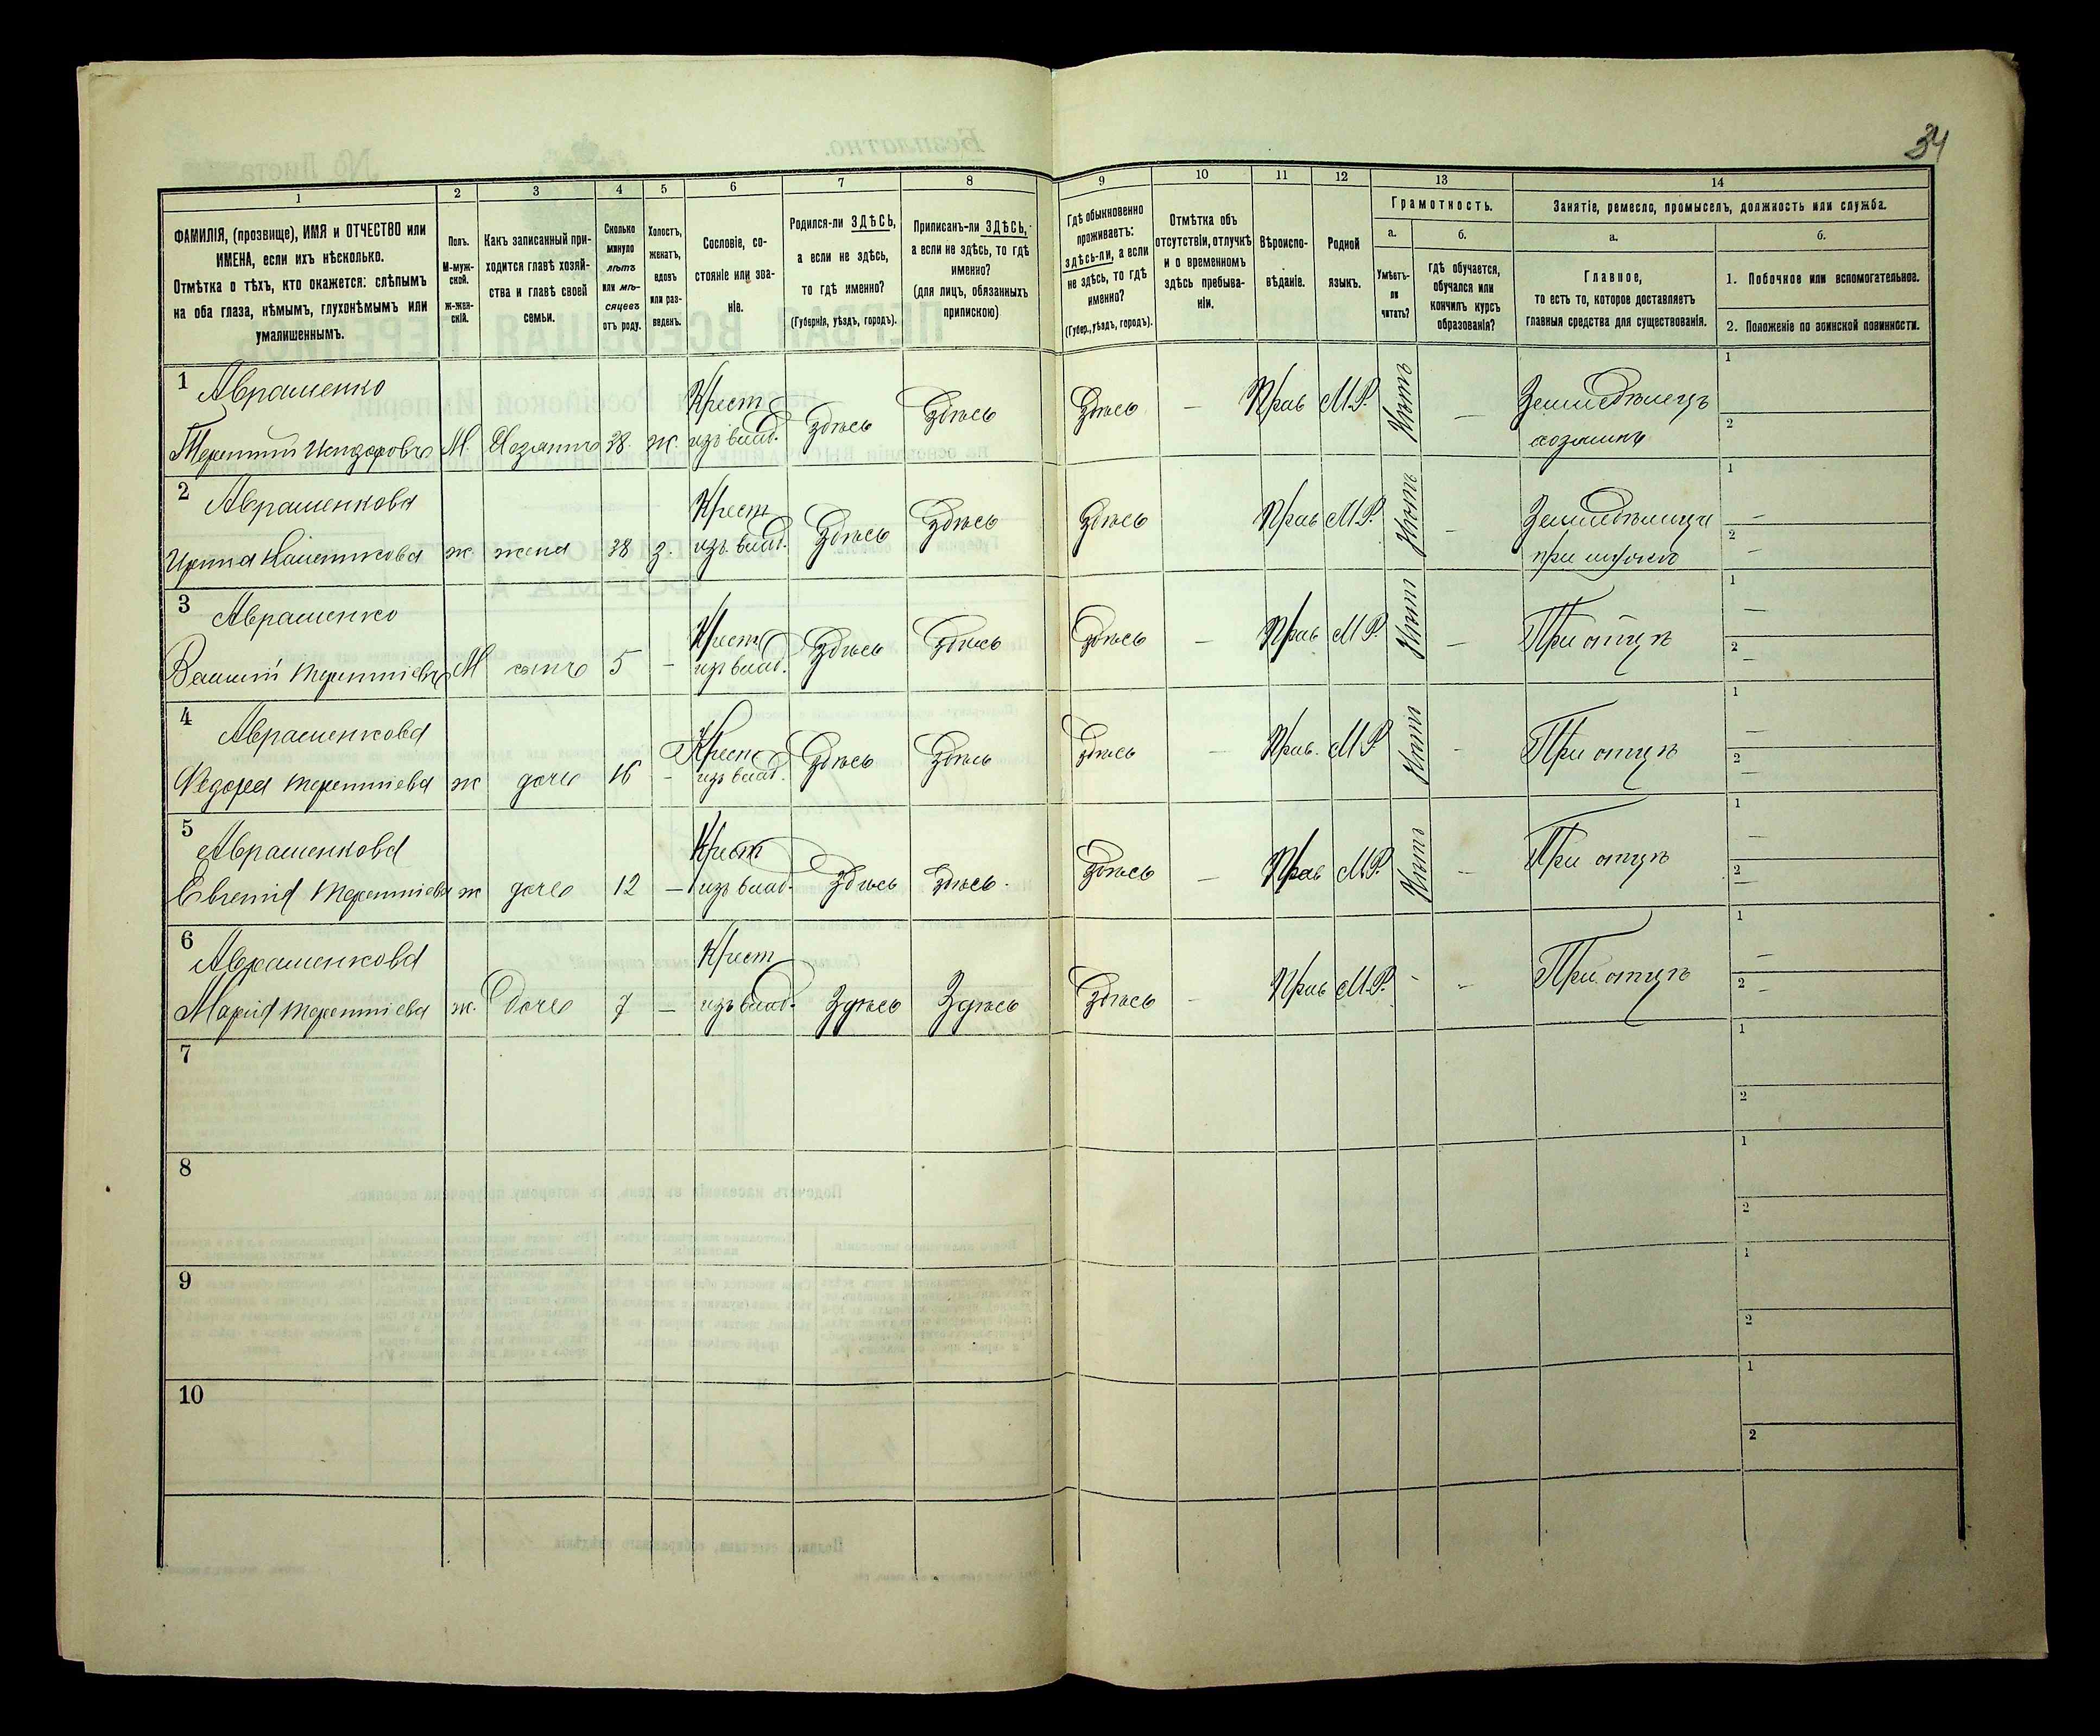 34
1 2 3 4 5 6 7 8 9 10 11 12 13 14
ФАМИЛІЯ, (прозвище), ИМЯ и ОТЧЕСТВО или
ИМЕНА, если ихъ нѣсколько.
Отмѣтка о тѣхъ, кто окажется: слѣпымъ
на оба глаза, нѣмымъ, глухонѣмымъ или
умалишеннымъ.
Полъ.
М-муж-
ской.
Ж-жен-
скій.
Какъ записанный при-
ходится главѣ хозяй-
ства и главѣ своей
семьи.
Сколько
минуло
лѣтъ
или мѣ-
сяцевъ
отъ роду.
Холостъ,
женатъ,
вдовъ
или раз-
веденъ.
Сословіе, со-
стояніе или зва-
ніе.
Родился-ли ЗДѢСЬ,
а если не здѣсь,
то гдѣ именно?
(Губернія, уѣздъ, городъ).
Приписанъ-ли ЗДѢСЬ,
а если не здѣсь, то гдѣ
именно?
(для лицъ, обязанныхъ
припискою)
Гдѣ обыкновенно
проживаетъ:
здѣсь-ли, а если
не здѣсь, то гдѣ
именно?
(Губер., уѣздъ, городъ).
Отмѣтка объ
отсутствіи, отлучкѣ
и о временномъ
здѣсь пребыва-
ніи.
Вѣроиспо-
вѣданіе.
Родной
языкъ.
Грамотность.
а.
Умѣетъ-
ли
читать?
б.
гдѣ обучается,
обучался или
кончилъ курсъ
образованія?
Занятіе, ремесло, промыселъ, должность или служба.
а.
Главное,
то есть то, которое доставляетъ
главныя средства для существованія.
б.
1. Побочное или вспомогательное.
2. Положеніе по воинской повинности.
1 Аврашенко Крест Здѣсь Здѣсь — Прав М.Р. Нѣтъ — Земледѣлецъ 1
Терентій Исидоровъ М. Хозяинъ 38. ж. изъ влад. здѣсь хозяинъ 2
2 Аврашенкова Крест Здѣсь Здѣсь Здѣсь Прав М.Р. Нѣтъ — Земледѣлица 1 —
Ирина ж. жена 38 з. изъ влад. при мужѣ 2 —
3 Аврашенко Крест Здѣсь Здѣсь Здѣсь — Прав М.Р. Нѣтъ — При отцѣ 1 —
Василій Терентіевъ М сынъ 5 — изъ влад. 2 —
4 Аврашенкова Крест Здѣсь Здѣсь Здѣсь — Прав. М.Р. Нѣтъ — При отцѣ 1 —
Федора Терентіева ж дочь 16 — изъ влад. 2 —
5 Аврашенкова Крест Здѣсь — Прав М.Р. Нѣтъ — При отцѣ 1 —
Евгенія Терентіева ж дочь 12 — изъ влад. Здѣсь здѣсь. 2 —
6 Аврашенкова Крест Здѣсь — Прав М.Р. - — При отцѣ 1 —
Марія Терентіева ж. Дочь 7 — изъ влад. Здѣсь Здѣсь 2 —
7 1
2
8 1
2
9 1
2
10 1
2